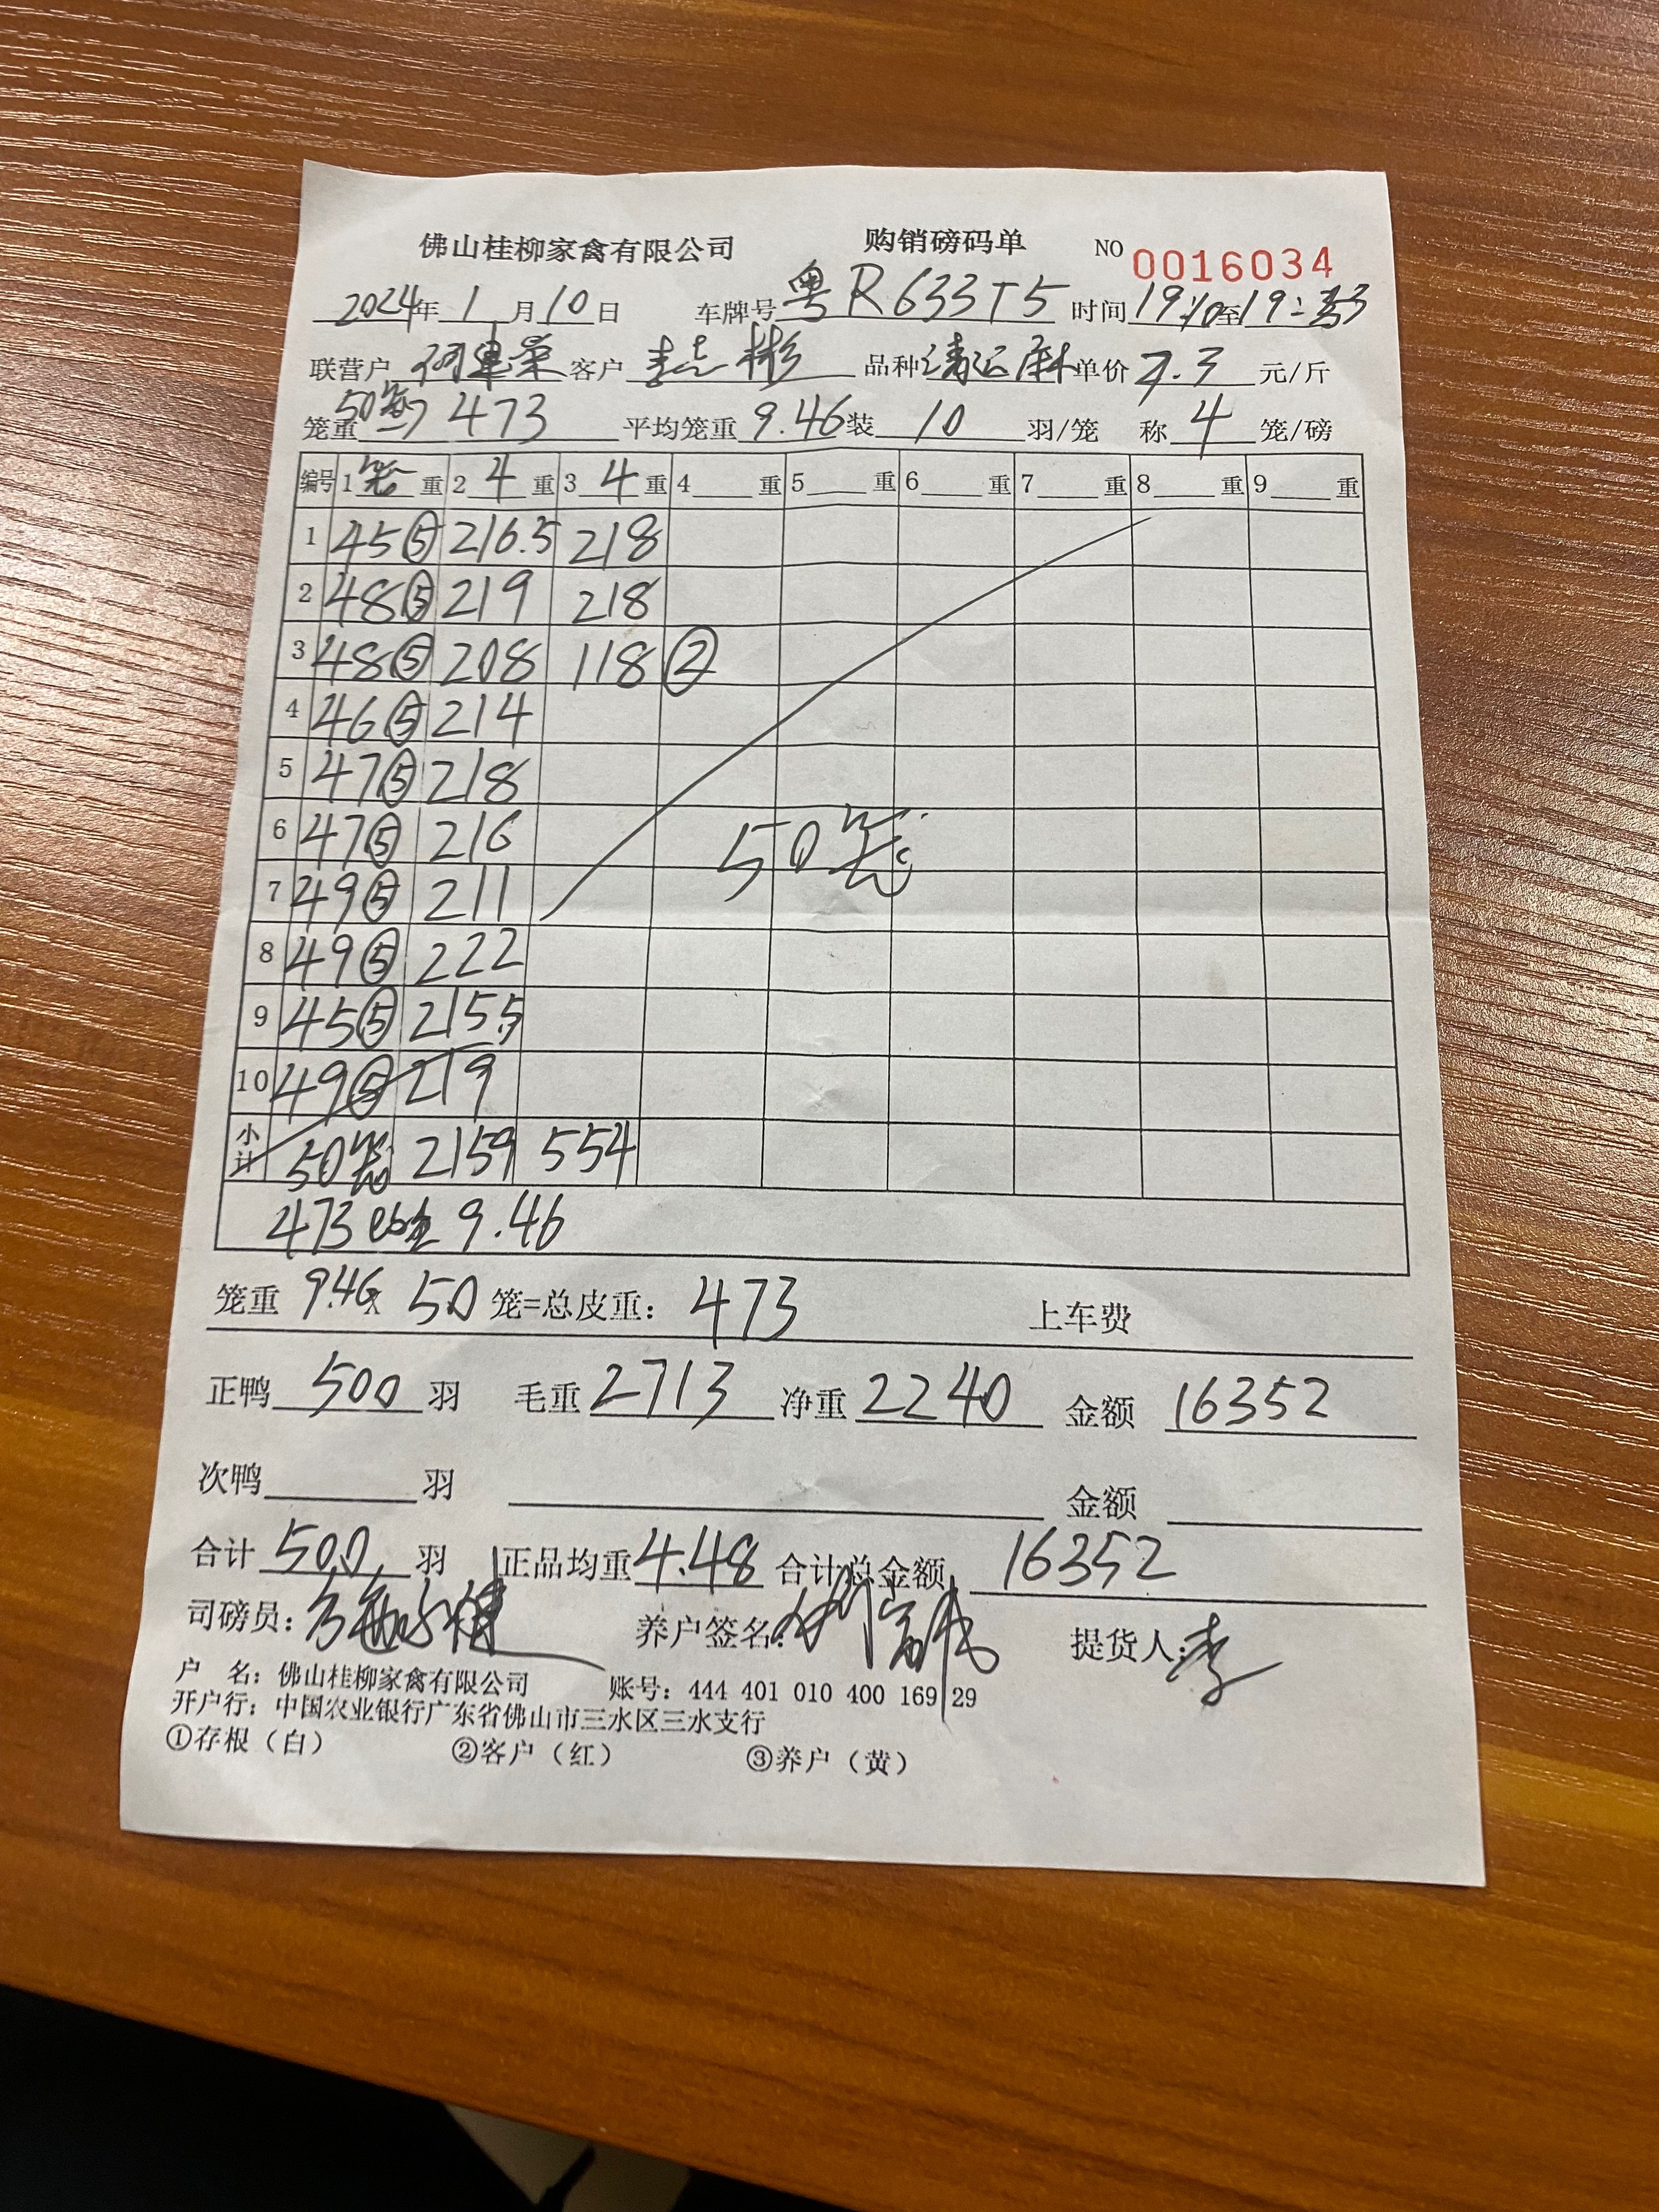 佛山桂柳家禽有限公司 购销磅码单 NO 0016034
2024年 1 月 10 日 车牌号 粤R633T5 时间 19:10 至 19:33
联营户 何建荣 客户 李志彬 品种 清远麻 单价 7.3 元/斤
笼重 50笼 473 平均笼重 9.46 装 10 羽/笼 称 4 笼/磅
编号 1 笼 重 2 4 重 3 4 重 4 重 5 重 6 重 7 重 8 重 9 重
1 45⑤ 216.5 218
2 48⑤ 219 218
3 48⑤ 208 118 ②
4 46⑤ 214
5 47⑤ 218
6 47⑤ 216
50笼
7 49⑤ 211
8 49⑤ 222
9 45⑤ 215.5
10 49⑤ 219
小计 50笼 2159 554
473 9.46
笼重 9.46 x 50 笼=总皮重: 473 上车费
正鸭 500 羽 毛重 2713 净重 2240 金额 16352
次鸭 羽 金额
合计 500 羽 正品均重 4.48 合计总金额 16352
司磅员: 养户签名: 提货人: 李
户 名: 佛山桂柳家禽有限公司 账号: 444 401 010 400 169 29
开户行: 中国农业银行广东省佛山市三水区三水支行
①存根（白） ②客户（红） ③养户（黄）